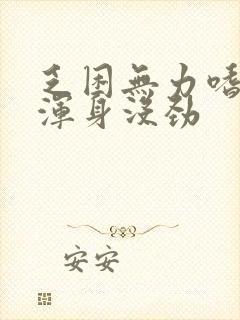 乏困無力嗜
渾身沒勁
安安